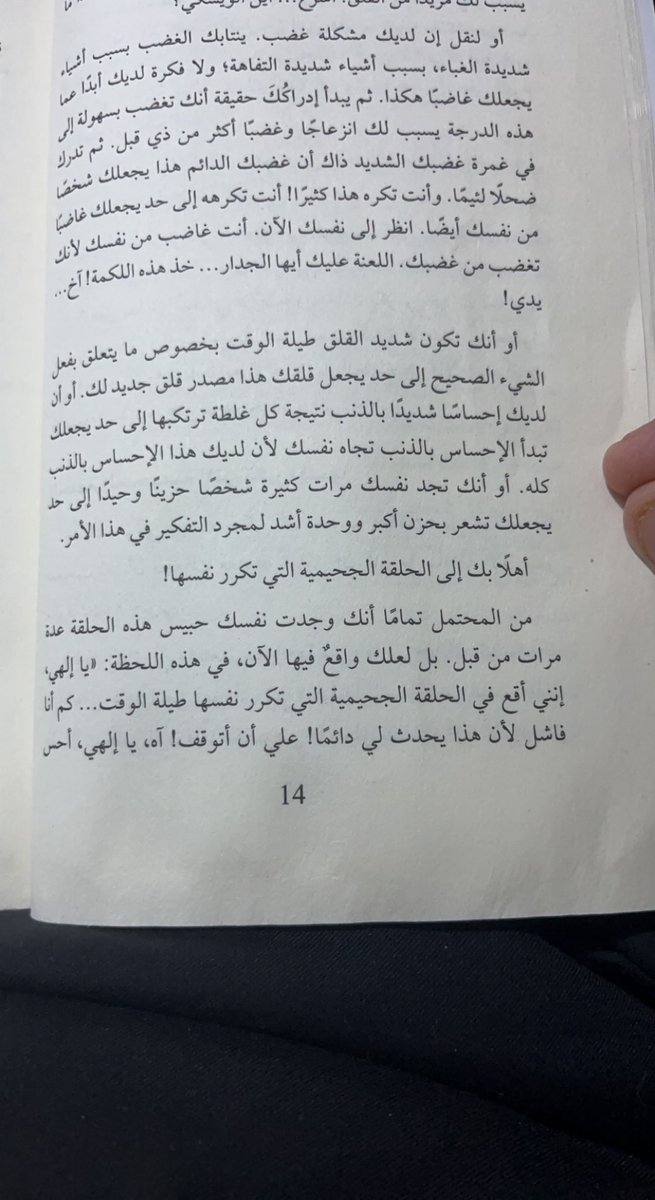 يسبب لك مزيدًا من القلق.
أو لنقل إن لديك مشكلة غضب. ينتابك الغضب بسبب أشياء
شديدة الغباء، بسبب أشياء شديدة التفاهة؛ ولا فكرة لديك أبدًا عما
يجعلك غاضبًا هكذا. ثم يبدأ إدراكُكَ حقيقة أنك تغضب بسهولة إلى
هذه الدرجة يسبب لك انزعاجًا وغضبًا أكثر من ذي قبل. ثم تدرك
في غمرة غضبك الشديد ذاك أن غضبك الدائم هذا يجعلك شخصًا
ضحلًا لئيمًا. وأنت تكره هذا كثيرًا! أنت تكرهه إلى حد يجعلك غاضبًا
من نفسك أيضًا. انظر إلى نفسك الآن. أنت غاضب من نفسك لأنك
تغضب من غضبك. اللعنة عليك أيها الجدار... خذ هذه اللكمة! آخ...
يدي!
أو أنك تكون شديد القلق طيلة الوقت بخصوص ما يتعلق بفعل
الشيء الصحيح إلى حد يجعل قلقك هذا مصدر قلق جديد لك. أو أن
لديك إحساسًا شديدًا بالذنب نتيجة كل غلطة ترتكبها إلى حد يجعلك
تبدأ الإحساس بالذنب تجاه نفسك لأن لديك هذا الإحساس بالذنب
كله. أو أنك تجد نفسك مرات كثيرة شخصًا حزينًا وحيدًا إلى حد
يجعلك تشعر بحزن أكبر ووحدة أشد لمجرد التفكير في هذا الأمر.
أهلًا بك إلى الحلقة الجحيمية التي تكرر نفسها!
من المحتمل تمامًا أنك وجدت نفسك حبيس هذه الحلقة عدة
مرات من قبل. بل لعلك واقعٌ فيها الآن، في هذه اللحظة: «يا إلهي،
إنني أقع في الحلقة الجحيمية التي تكرر نفسها طيلة الوقت... كم أنا
فاشل لأن هذا يحدث لي دائمًا! علي أن أتوقف! آه، يا إلهي، أحس
14